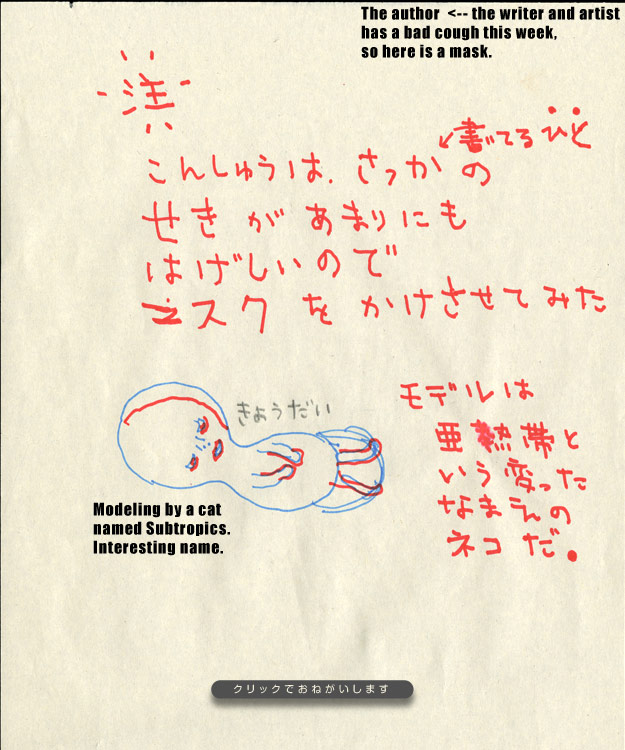 The author <-- the writer and artist
has a bad cough this week,
so here is a mask.
↙書いてるひと
こんしゅうは、さっかの
せきがあまりにも
はげしいので
マスクをかけさせてみた
きょうだい
モデルは
亜熱帯と
いう変った
なまえの
ネコだ。
Modeling by a cat
named Subtropics.
Interesting name.
クリックでおねがいします